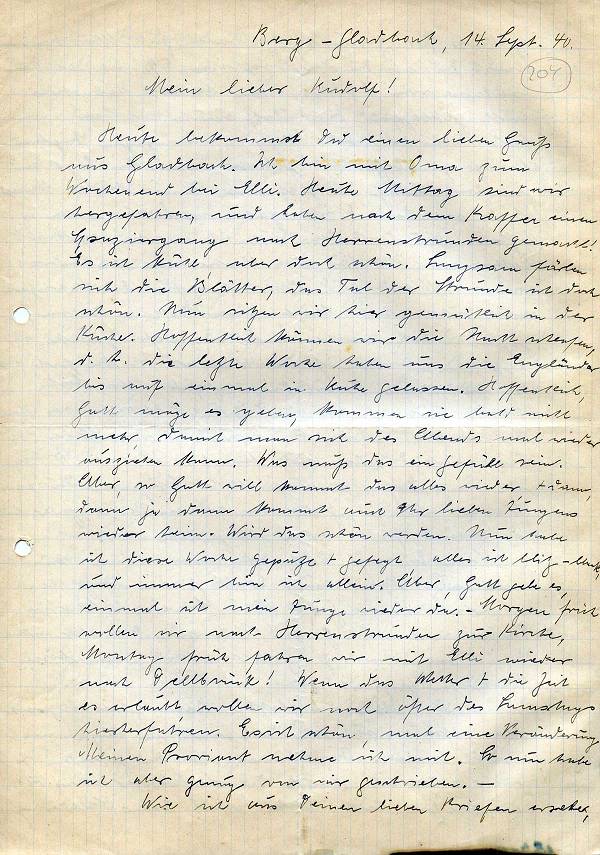 Berg-Gladbach, 14. Sept. 40.
204
Mein lieber Rudolf!
Heute bekommst Du einen lieben Gruß
aus Gladbach. Ich bin mit Oma zum
Wochenend bei Elli. Heute Mittag sind wir
hergefahren, und haben nach dem Kaffee einen
Spaziergang nach Herrenstrunden gemacht!
Es ist kühl, aber doch schön. Langsam färben
sich die Blätter, das Tal der Strunde ist doch
schön. Nun sitzen wir hier gemütlich in der
Küche. Hoffentlich können wir die Nacht schlafen,
d. h. die letzte Woche haben uns die Engländer
bis auf einmal in Ruhe gelassen. Hoffentlich,
Gott möge es geben, kommen sie bald nicht
mehr, damit man sich des Abends mal wieder
ausziehen kann. Was muß das ein Gefühl sein.
Aber, so Gott will kommt das alles wieder + dann,
dann ja dann kommt auch Ihr lieben Jungens
wieder heim. Wird das schön werden. Nun habe
ich diese Woche geputzt + gefegt, alles ist blitz-blank,
und immer bin ich allein. Aber, Gott gebe es,
einmal ist mein Junge wieder da. - Morgen früh
wollen wir nach Herrenstrunden zur Kirche,
Montag früh fahren wir mit Elli wieder
nach Dellbrück! Wenn das Wetter + die Zeit
es erlaubt wollen wir noch öfter des Samstags
hierherfahren. Es ist schön, mal eine Veränderung
Meinen Proviant nehme ich mit. So nun habe
ich aber genug von mir geschrieben. -
Wie ich aus Deinen lieben Briefen ersehe,